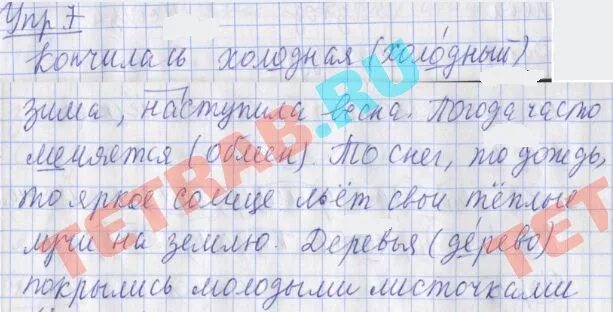 Упр 7
Кончилась холодная (холо́дный)
зима, наступила весна. Погода часто
меняется (обмен). То снег, то дождь,
то яркое солнце льёт свои тёплые
лучи на землю. Деревья (де́рево)
покрылись молодыми листочками
TETRAB.RU
TET